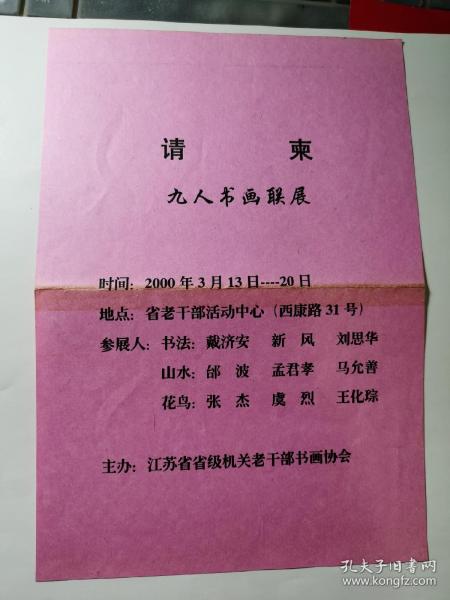 请 柬
九人书画联展
时间：2000年3月13日----20日
地点：省老干部活动中心（西康路31号）
参展人：书法：戴济安 新 风 刘思华
山水：邰 波 孟君孝 马允善
花鸟：张 杰 虞 烈 王化琮
主办：江苏省省级机关老干部书画协会
孔夫子旧书网
www.kongfz.com